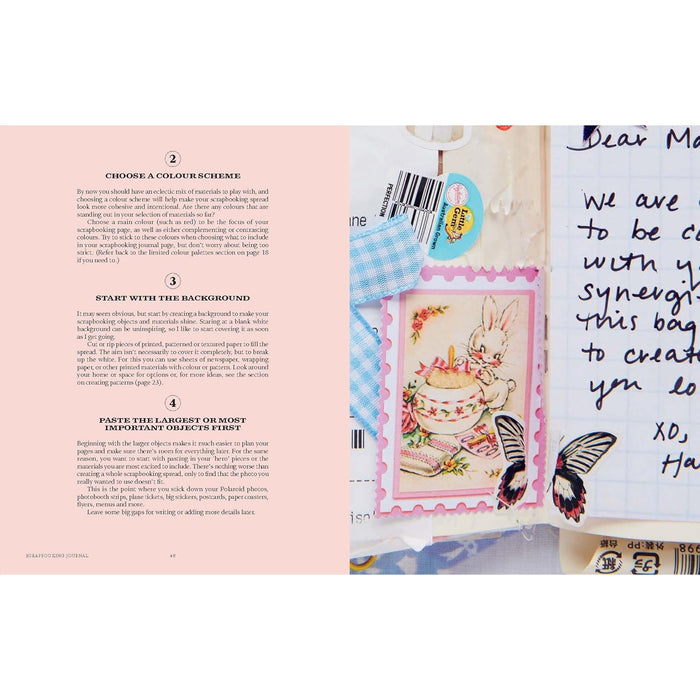 2
CHOOSE A COLOUR SCHEME
By now you should have an eclectic mix of materials to play with, and
choosing a colour scheme will help make your scrapbooking spread
look more cohesive and intentional. Are there any colours that are
standing out in your selection of materials so far?
Choose a main colour (such as red) to be the focus of your
scrapbooking page, as well as either complementing or contrasting
colours. Try to stick to these colours when choosing what to include
in your scrapbooking journal page, but don't worry about being too
strict. (Refer back to the limited colour palettes section on page 18
if you need to.)
3
START WITH THE BACKGROUND
It may seem obvious, but start by creating a background to make your
scrapbooking objects and materials shine. Staring at a blank white
background can be uninspiring, so I like to start covering it as soon
as I get going.
Cut or rip pieces of printed, patterned or textured paper to fill the
spread. The aim isn't necessarily to cover it completely, but to break
up the white. For this you can use sheets of newspaper, wrapping
paper, or other printed materials with colour or pattern. Look around
your home or space for options or, for more ideas, see the section
on creating patterns (page 23).
4
PASTE THE LARGEST OR MOST
IMPORTANT OBJECTS FIRST
Beginning with the larger objects makes it much easier to plan your
pages and make sure there's room for everything later. For the same
reason, you want to start with pasting in your 'hero' pieces or the
materials you are most excited to include. There's nothing worse than
creating a whole scrapbooking spread, only to find that the photo you
really wanted to use doesn't fit.
This is the point where you stick down your Polaroid photos,
photobooth strips, plane tickets, big stickers, postcards, paper coasters,
flyers, menus and more.
Leave some big gaps for writing or adding more details later.
SCRAPBOOKING JOURNAL
PERFECTION
Little
Gem
Australian Grown
Dear Ma
we are
to be co
with yo
synergi
this bag
to create
you lo
xo,
Ha
外装:PP
紙
プラ
998